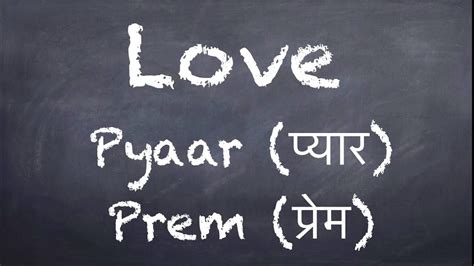 Love
Pyaar (प्यार)
Prem (प्रेम)